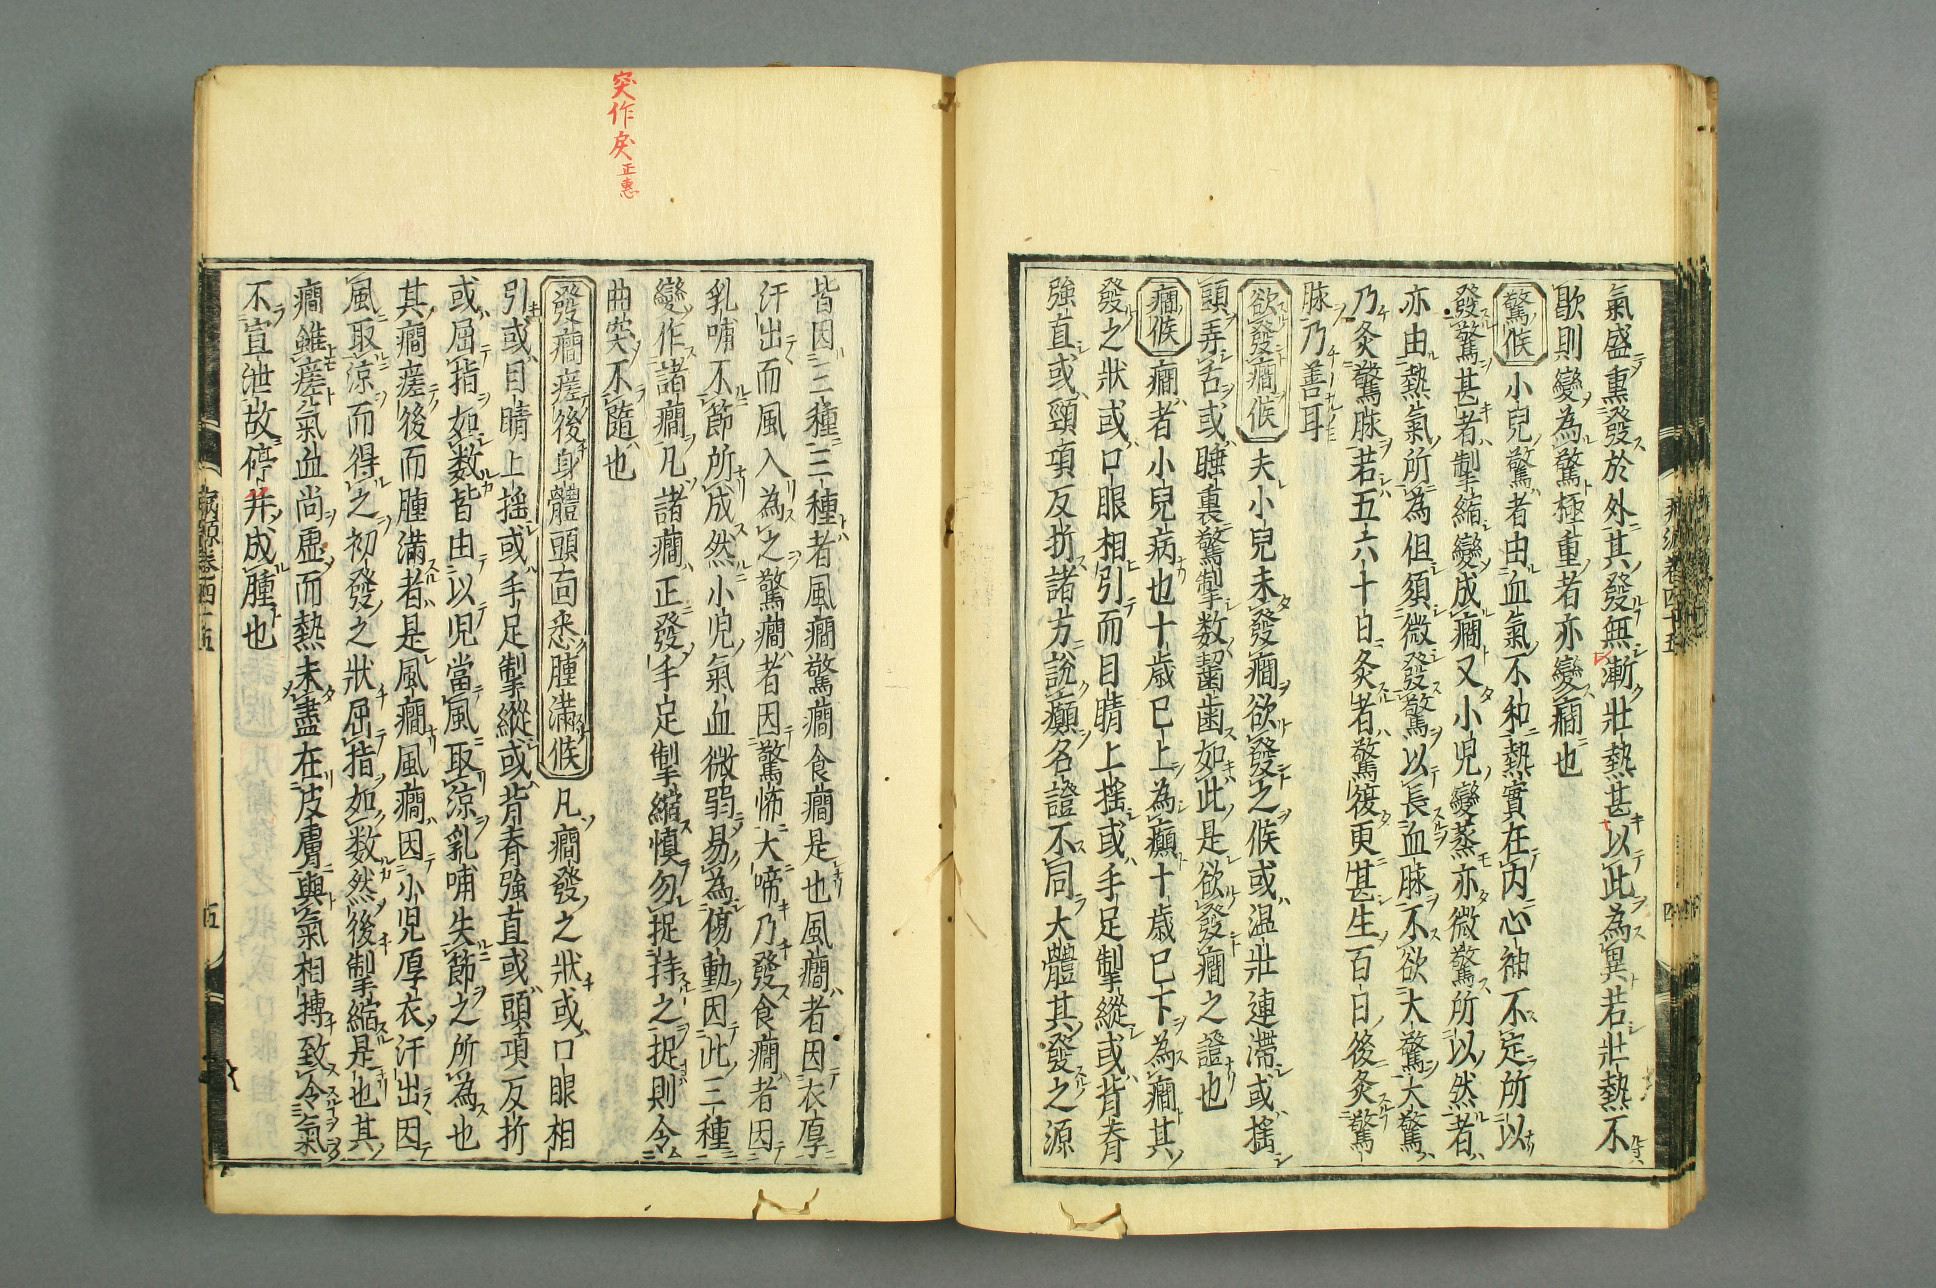 氣盛熏發於外其發無漸壯熱甚以此為異若壯熱不
歇則變為驚極重者亦變癇也
驚候 小兒驚者由血氣不和熱實在内心神不定所以
發驚甚者掣縮變成癇又小兒變蒸亦微驚所以然者
亦由熱氣所為但須微發驚以長血脉不欲大驚大驚
乃灸驚脉若五六十日灸者驚復更甚生百日後灸驚
脉乃善耳
欲發癇候 夫小兒未發癇欲發之候或温壯連滯或搖
頭弄舌或睡裏驚掣数齧歯如此是欲發癇之證也
癇候 癇者小兒病也十歳已上為癲十歳已下為癇其
發之狀或口眼相引而目睛上搖或手足掣縱或背脊
強直或頸項反折諸方說癲名證不同大體其發之源
病源卷四十五
四
突作戾正惠
皆因三種三種者風癇驚癇食癇是也風癇者因衣厚
汗出而風入為之驚癇者因驚怖大啼乃發食癇者因
乳哺不節所成然小児氣血微弱易為傷動因此三種
變作諸癇凡諸癇正發手足掣縮慎勿捉持之捉則令
曲突不隨也
發癇瘥後身體頭面悉腫滿候 凡癇發之狀或口眼相
引或目睛上搖或手足掣縱或背脊強直或頭項反折
或屈指如数皆由以児當風取涼乳哺失節之所為也
其癇瘥後而腫滿者是風癇風癇因小児厚衣汗出因
風取涼而得之初發之狀屈指如数然後掣縮是也其
癇雖瘥氣血尚虛而熱未盡在皮膚與氣相搏致令氣
不宣泄故停并成腫也
病源卷四十五
五